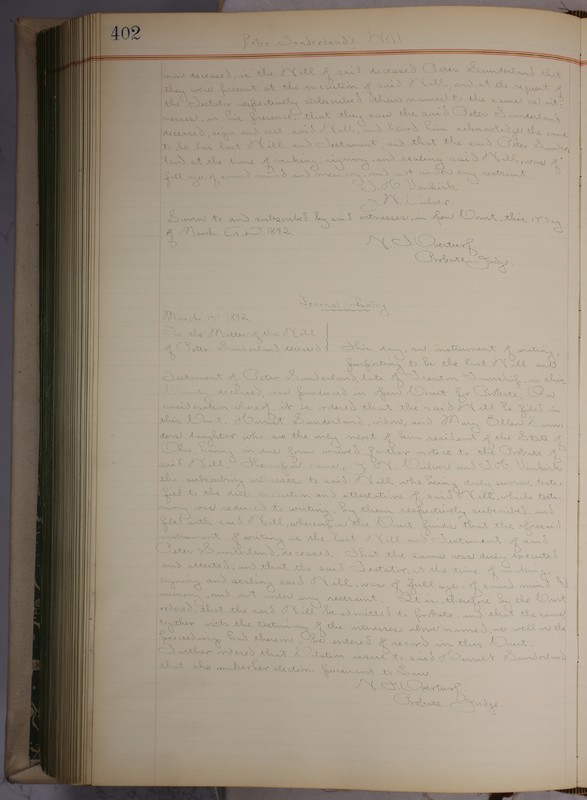 402
Peter Sunderland's Will
now deceased, as the Will of said deceased Peter Sunderland that
they were present at the execution of said Will, and at the request of
the Testator respectively subscribed their names to the same as wit-
nesses, in his presence, that they saw the said Peter Sunderland
deceased, sign and seal said Will, and heard him acknowledge the same
to be his last Will and Testament, and that the said Peter Sunder
land at the time of making, signing and sealing said Will, was of
full age, of sound mind and memory, and not under any restraint
Sworn to and subscribed by said witnesses, in open Court, this day
of March A.D. 1892
Probate Judge.
Journal Entry
March 1892
In the Matter of the Will
of Peter Sunderland deceased
This day, an instrument of writing,
purporting to be the last Will and
Testament of Peter Sunderland, late of Trenton Township in this
County, deceased, was produced in open Court for Probate. On
consideration whereof it is ordered that the said Will be filed in
this Court. Harriet Sunderland, widow, and Mary Ellen
daughter who are the only next of kin resident of the State of
Ohio, having in due form waived further notice to the Probate of
said Will. Thereupon came, and
the subscribing witnesses to said Will, who being duly sworn testi-
fied to the due execution and attestation of said Will, which testi-
mony was reduced to writing, by them respectively subscribed, and
filed with said Will, whereupon the Court finds that the aforesaid
instrument of writing is the last Will and Testament of said
Peter Sunderland, deceased. That the same was duly executed
and attested, and that the said Testator, at the time of making,
signing and sealing said Will, was of full age, of sound mind &
memory, and not under any restraint. It is therefore by the Court
ordered that the said Will be admitted to Probate, and that the same
together with the testimony of the witnesses above named, as well as the
proceedings had thereon be entered of record in this Court.
Further ordered that Citation issue to said Harriet Sunderland
that she make her election pursuant to law.
Probate Judge.